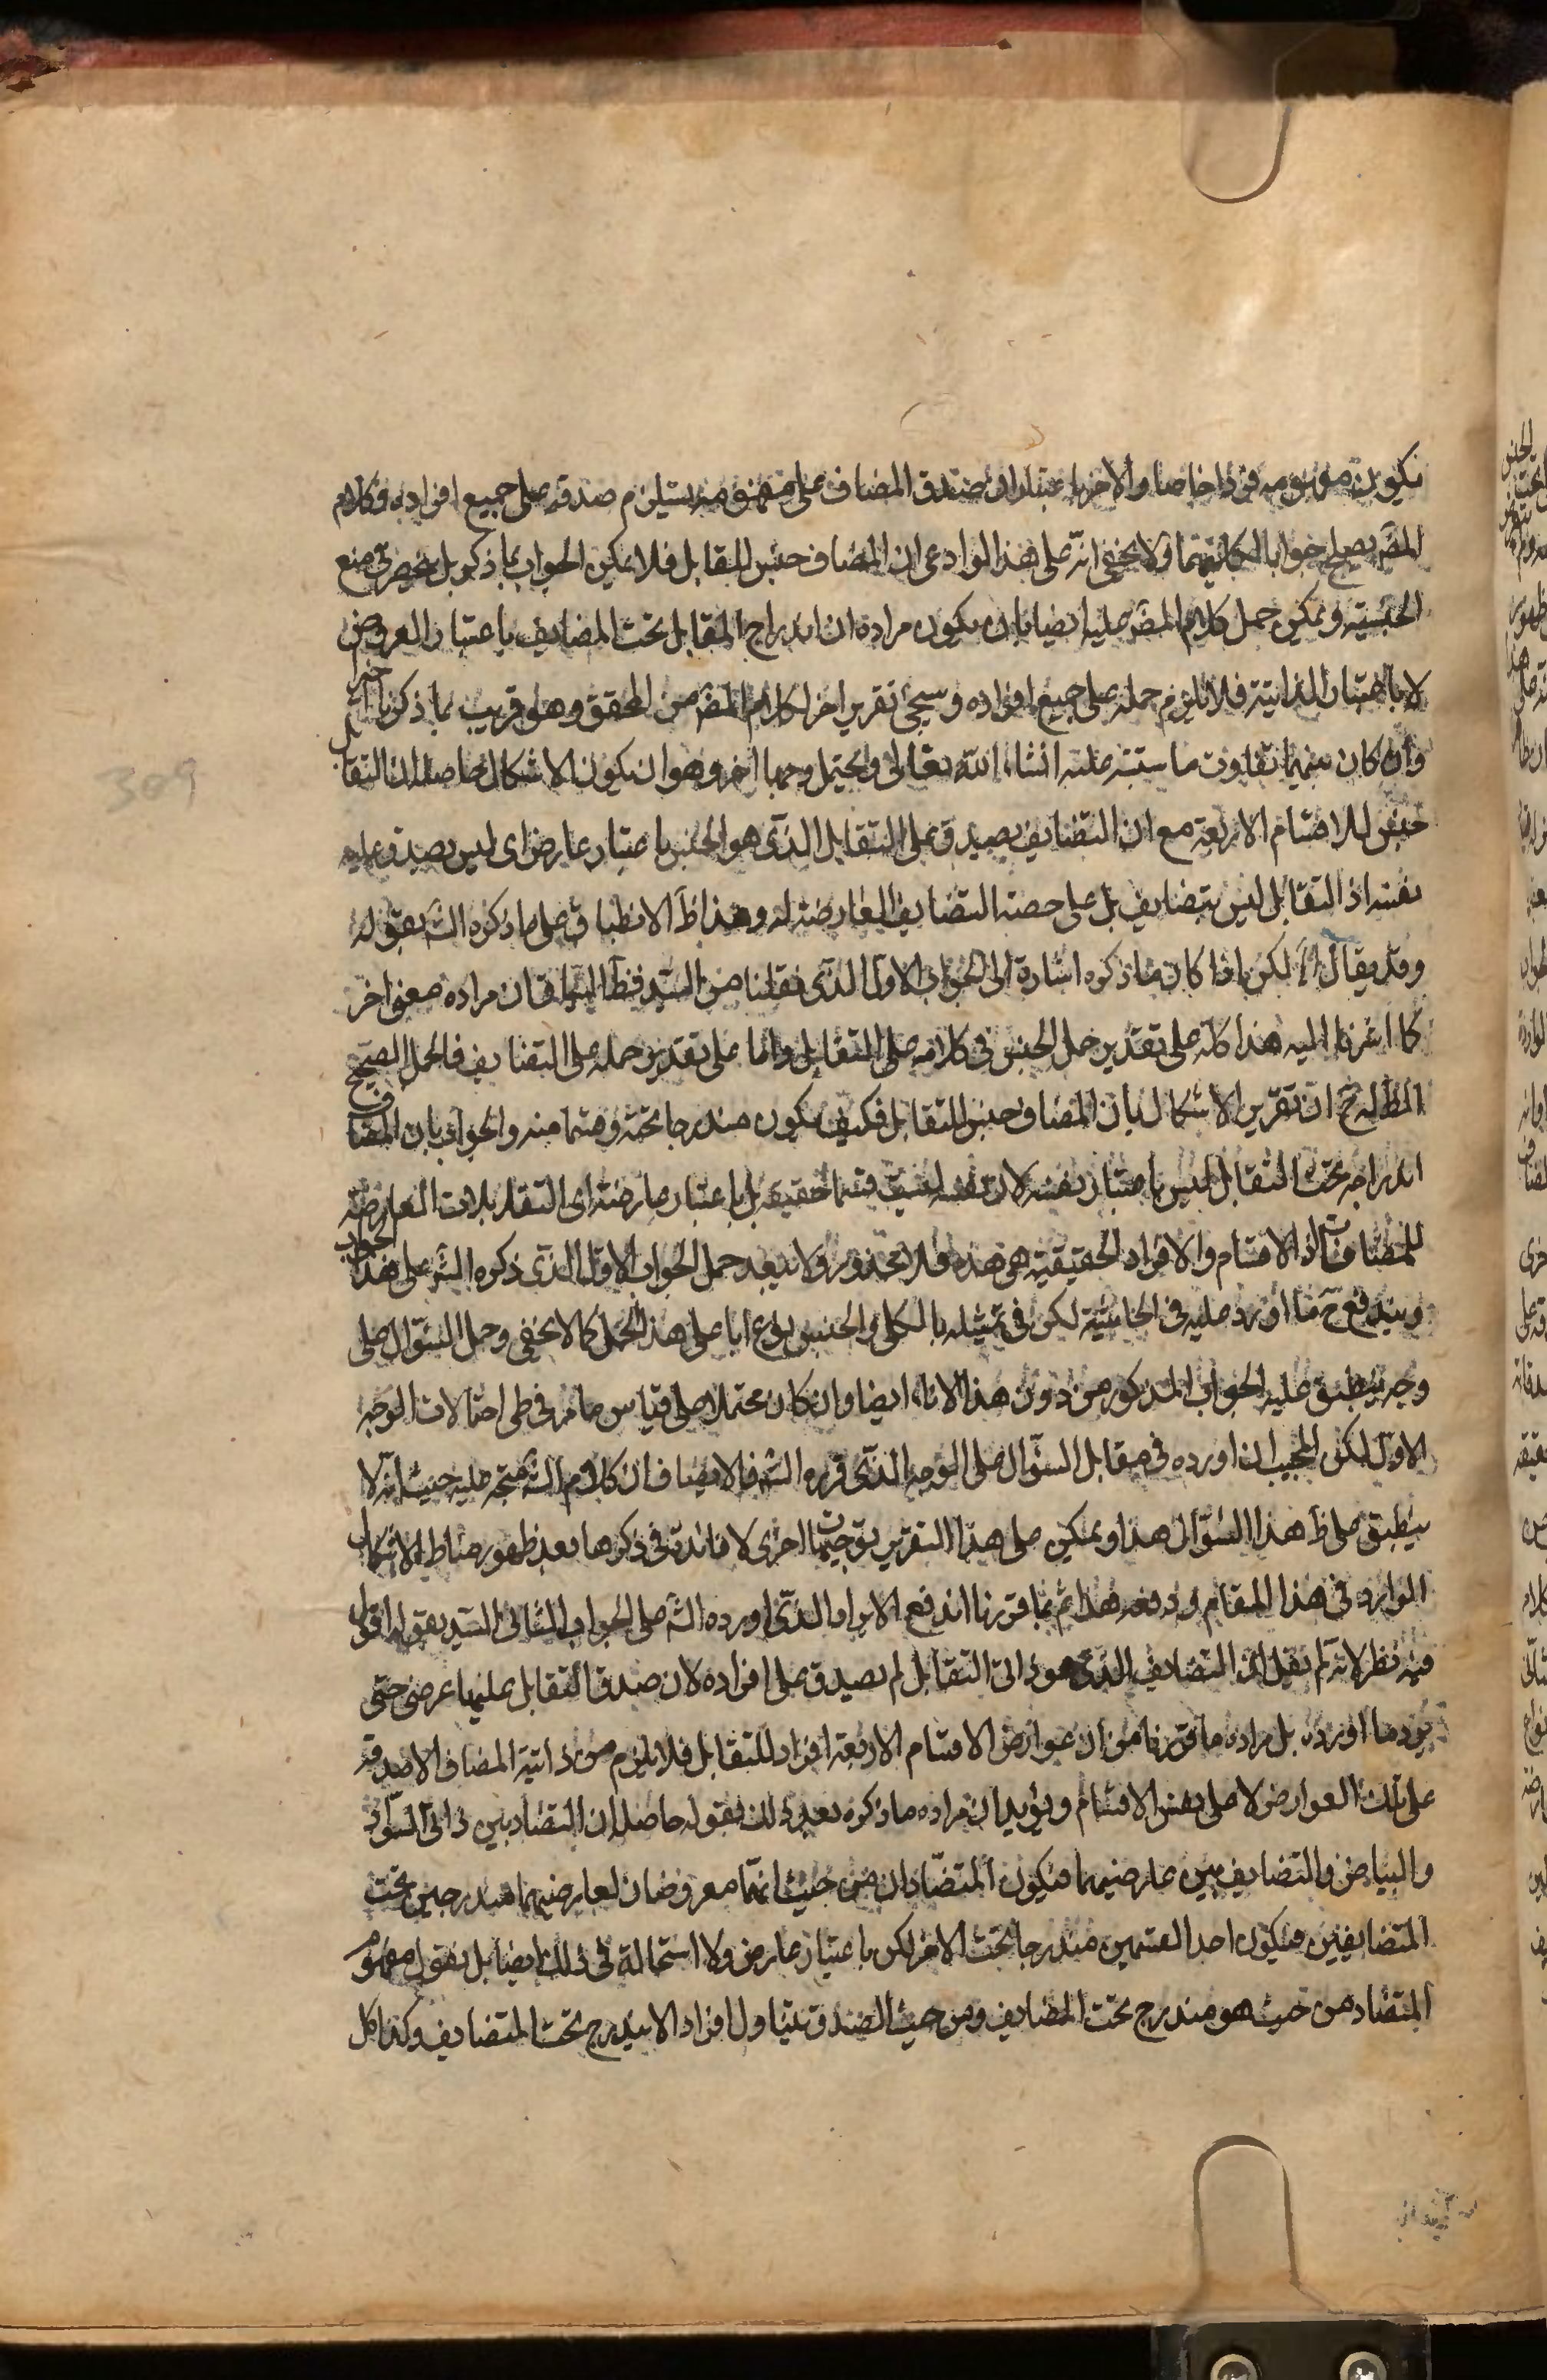 يكون مفهومه فردا خاصا والاخر باعتبار ان صدق المضاف على مفهومه يستلزم صدقه على جميع افراده فكلام
المصّ يصلح جوابا لكلتيهما ولا يخفى انه على هذا لو ادعى ان المضاف جنس للتقابل فلا يمكن الجواب بما ذكر بل ينحصر في منع
الجنسية ويمكن حمل كلام المصّ عليه ايضا بان يكون مراده ان اندراج التقابل تحت المضايف باعتبار العروض
لا باعتبار الذاتية فلا يلزم حمله على جميع افراده وسيجئ تقرير اخر لكلام المصّ من المحقق وهو قريب بما ذكرنا
وان كان بينهما تفاوت ما ستنبه عليه انشاء الله تعالى ويحتمل وجها اخر وهو ان يكون الاشكال حاصله ان التقابل
جنس للاقسام الاربعة مع ان التضايف يصدق على التقابل الذي هو الجنس باعتبار عارض اى ليس يصدق عليه
نفسه اذ التقابل ليس بتضايف بل على حصته التضايف العارضة له وهذا ظَ الانطباق على ما ذكره الشَ بقوله
وقد يقال الخ لكن اذا كان ما ذكره اشارة الى الجواب الاول الذي نقلنا من السيد فظَ السياق ان مراده معنى اخر
كما اشرنا اليه هذا كله على تقدير حمل الجنس في كلامه على التقابل واما على تقدير حمله على التضايف فالحمل الصحيح
المطَ له حَ ان تقرير الاشكال بان المضاف جنس للتقابل فكيف يكون مندرجا تحته وقسما منه والجواب بان المضاف
اندراجه تحت التقابل ليس باعتبار نفسه لان نفسه ليست قسما حقيقة بل باعتبار عارضه اى التقابلات العارضة
للمتضايفات اذ الاقسام والافراد الحقيقية هي هذه فلا محذور ولا يبعد حمل الجواب الاول الذي ذكره الشَ على هذا الجواب
ويندفع حَ ما اورد عليه في الحاشية لكن في تمثيله بالكلي والجنس نوع اباء على هذا الحمل كما لا يخفى وحمل السؤال على
وجه ينطبق عليه الجواب المذكور من دون هذا الاباء ايضا وان كان محتملا على قياس ما مر في طى احتمالات الوجه
الاول لكن المجيب لما اورده في مقابل السؤال على الوجه الذي قرره الشَ فالانصاف ان كلام الشَ متجه عليه حيث انه لا
ينطبق على ظَ هذا السؤال هذا ويمكن على هذا التقرير توجيهات اخرى لا فائدة في ذكرها بعد ظهور مناط الاشكال
الوارد في هذا المقام ودفعه هذا ثم بما قررنا اندفع الايراد الذي اورده الشَ على الجواب الثاني للسيد بقوله اقول
فيه نظر لانه لم يقل ان التضايف الذي هو ذاتي التقابل لم يصدق على افراده لان صدق التقابل عليها عرضي حتى
يرد ما اورده بل مراده ما قررنا من ان عوارض الاقسام الاربعة افراد للتقابل فلا يلزم من ذاتية المضاف الا صدقه
على تلك العوارض لا على نفس الاقسام ويؤيد ان مراده ما ذكره بعد ذلك بقوله حاصله ان التضاد بين ذاتى السواد
والبياض والتضايف بين عارضيهما فيكون المتضادان من حيث انهما معروضان لعارضيهما مندرجين تحت
المتضايفين فيكون احد القسمين مندرجا تحت الاخر لكن باعتبار عارض ولا استحالة في ذلك ايضا بل نقول مفهوم
المتضاد من حيث هو مندرج تحت المضايف ومن حيث الصدق تتناول افراد الا يندرج تحت المتضايف وكذا كل
309